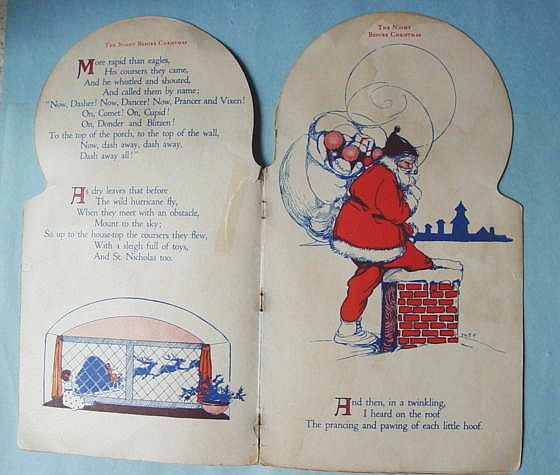 The Night Before Christmas
More rapid than eagles,
His coursers they came,
And he whistled and shouted,
And called them by name;
"Now, Dasher! Now, Dancer! Now, Prancer and Vixen!
On, Comet! On, Cupid!
On, Donder and Blitzen!
To the top of the porch, to the top of the wall,
Now, dash away, dash away,
Dash away all!"
As dry leaves that before
The wild hurricane fly,
When they meet with an obstacle,
Mount to the sky;
So up to the house-top the coursers they flew,
With a sleigh full of toys,
And St. Nicholas too.
The Night
Before Christmas
And then, in a twinkling,
I heard on the roof
The prancing and pawing of each little hoof.